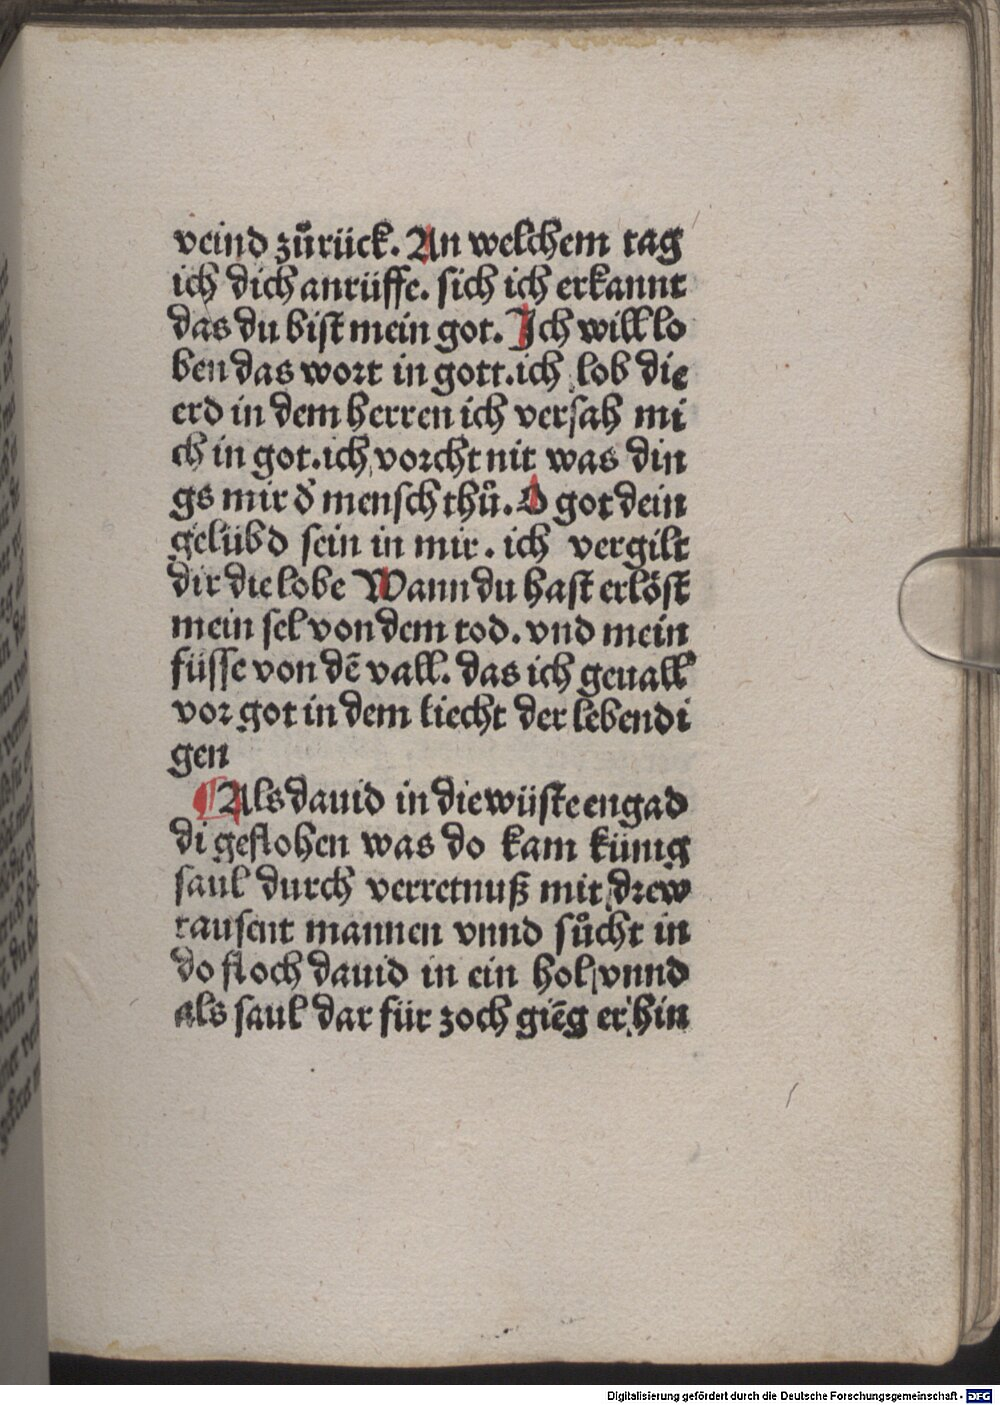 veind zůrück. An welchem tag
ich dich anrüffe. sich ich erkannt
das du bist mein got. Ich will lo
ben das wort in gott. ich lob die
erd in dem herren ich versah mi
ch in got. ich vorcht nit was din
gs mir d̕ mensch thů. O got dein
gelübd sein in mir. ich vergilt
dir die lobe Wann du hast erlöst
mein sel von dem tod. vnd mein
füsse von dē vall. das ich geuall
vor got in dem liecht der lebendi
gen
¶ Als dauid in die wüste engad
di geflohen was do kam künig
saul durch verretnuß mit drew
tausent mannen vnnd sůcht in
do floch dauid in ein hol vnnd
als saul dar für zoch giēg er hin
Digitalisierung gefördert durch die Deutsche Forschungsgemeinschaft - DFG